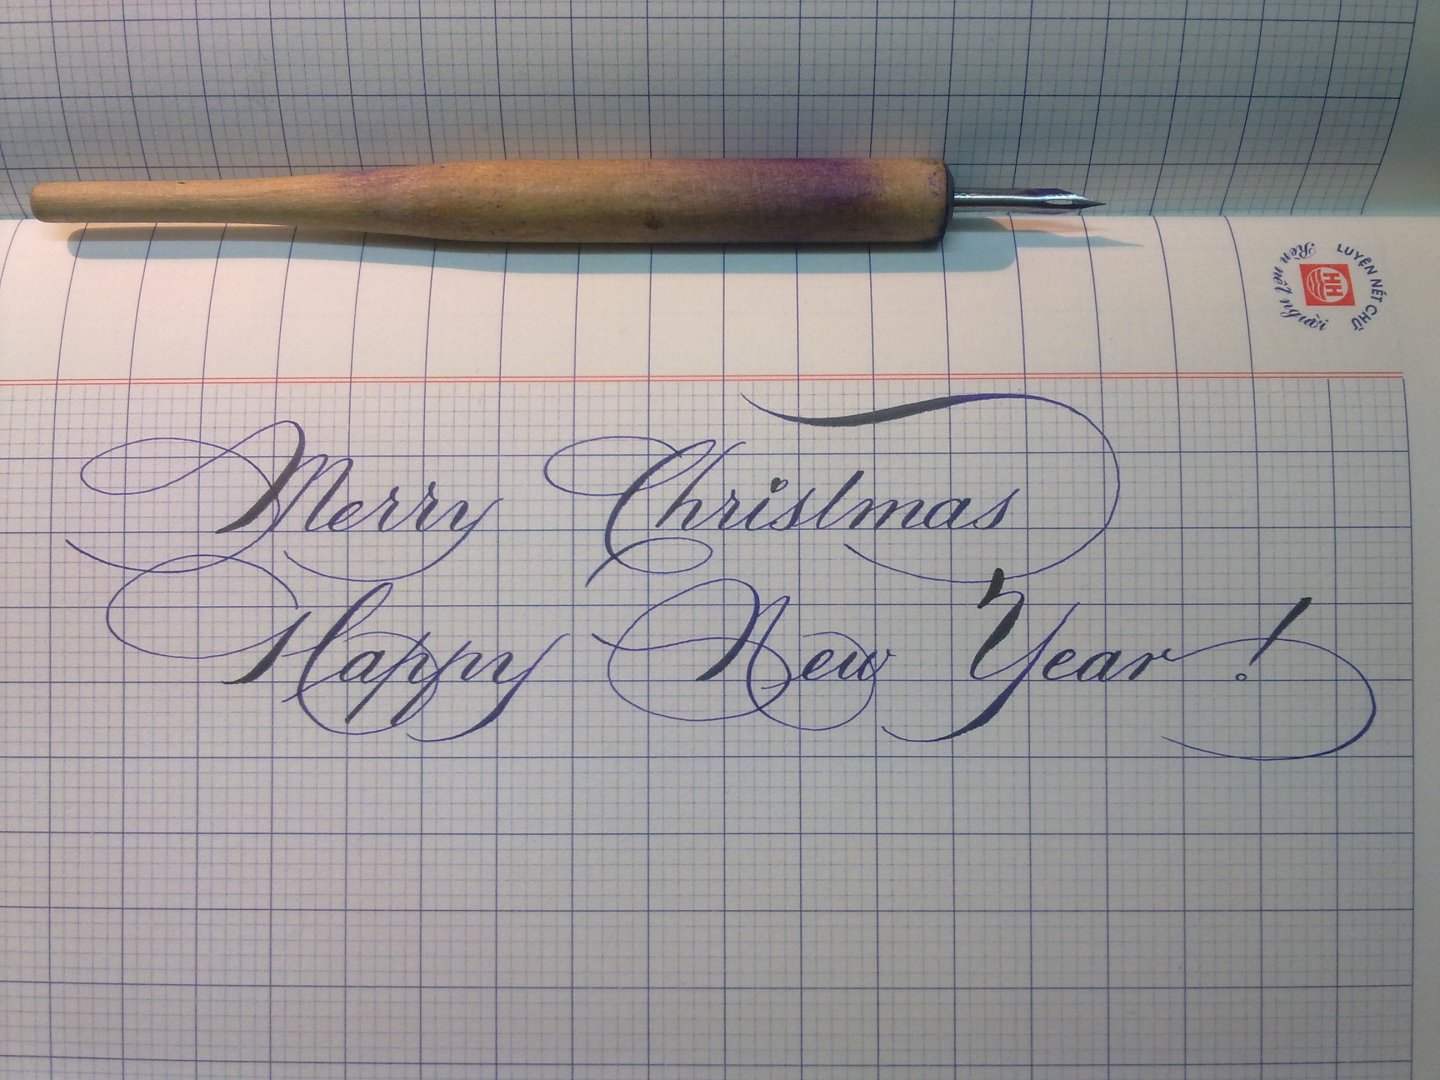 LUYỆN NÉT CHỮ
Rèn nết người
HH
Merry Christmas
Happy New Year !